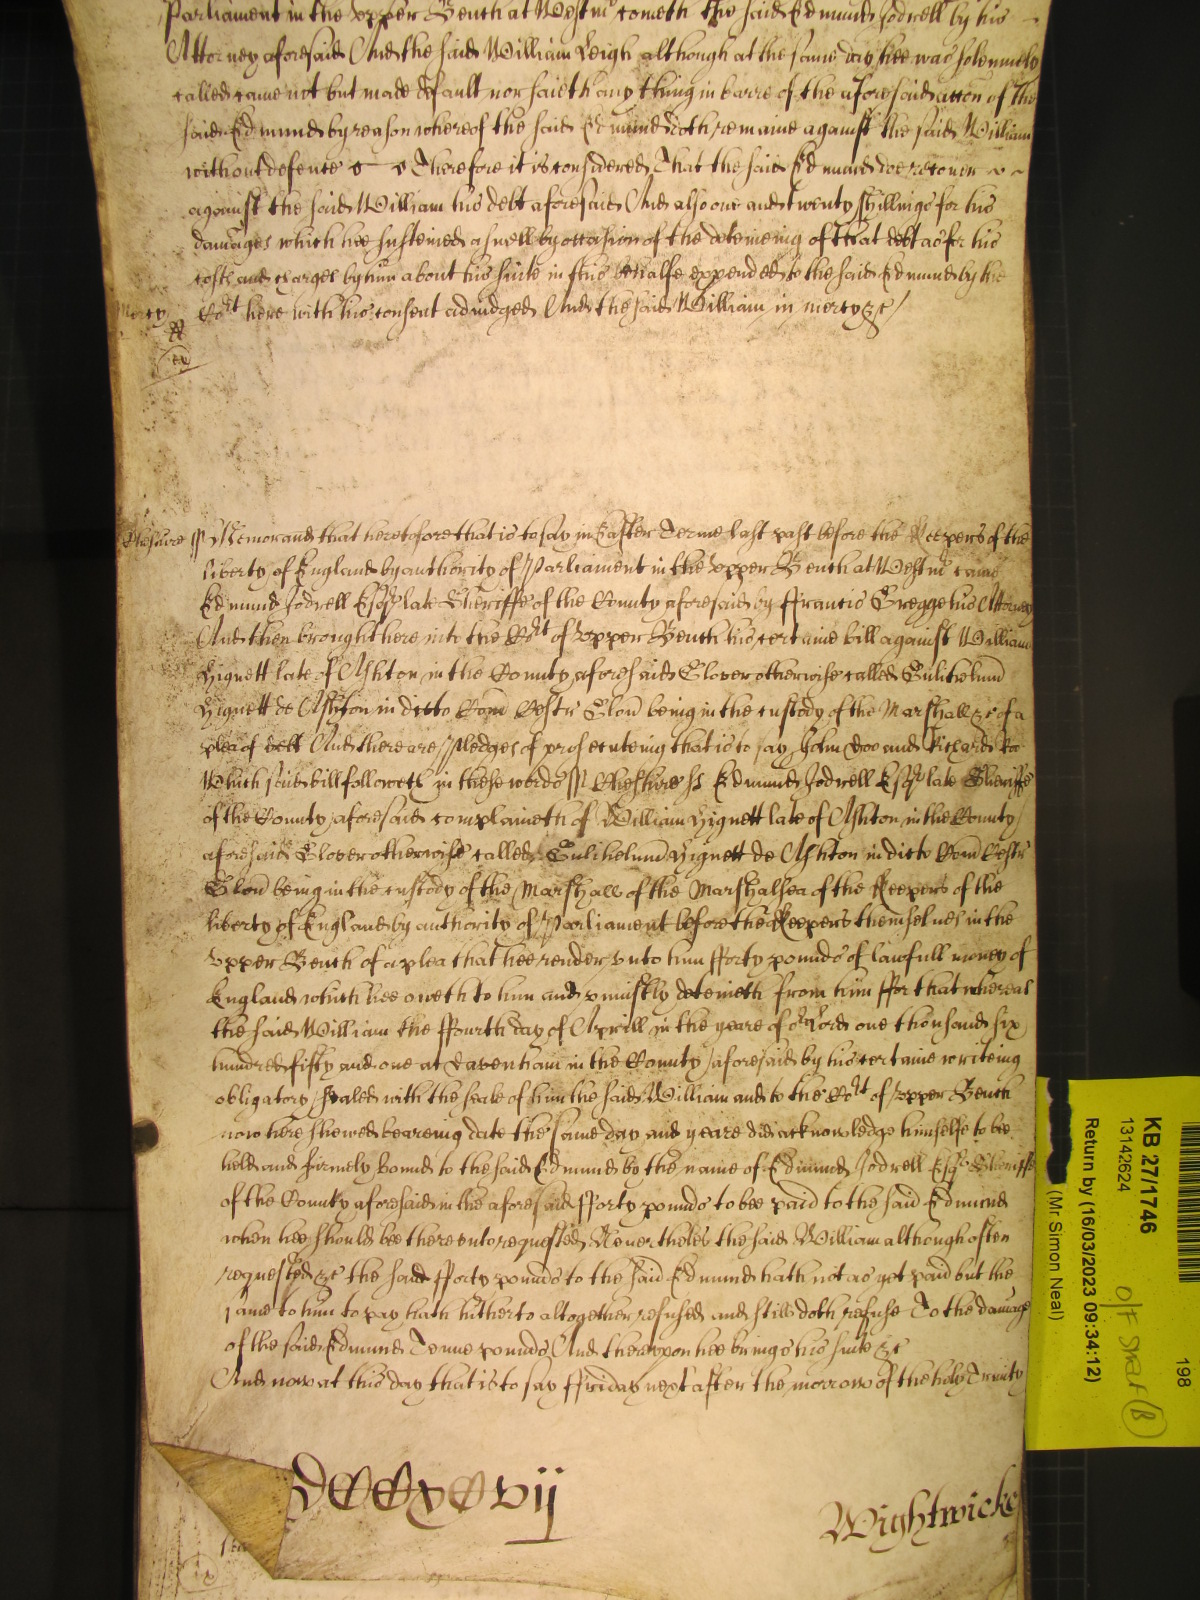 Parliament in the Upper Bench at Westmr cometh the said Edmund Jodrell by his
Attorney aforesaid And the said William Leigh although at the same day hee was solemnely
called came not but made default nor saieth any thing in barre of the aforesaid accon of the
said Edmund by reason whereof the said Edmund doth remaine against the said William
without defence Therefore it is considered That the said Edmund doe recover
against the said William his debt aforesaid And also one and twenty shillings for his
damages which hee susteined aswell by occasion of the deteineing of that debt as for his
costs and charges by him about his suite in this behalfe expended to the said Edmund by the
Mercy Cort here with his consent adiudged And the said William in mercy &c
Cheshire ss Memorand that heretofore that is to say in Easter Terme last past before the Keepers of the
liberty of England by authority of Parliament in the Upper Bench at Westmr came
Edmund Jodrell Esqr late Sheriffe of the County aforesaid by Francis Gregge his Attorney
And then brought here into the Cort of Upper Bench his certaine bill against William
Hignett late of Ashton in the County aforesaid Glover otherwise called Gulihelmu
Hignett de Ashton in dicto Com Cestr Glov being in the custody of the Marshall &c of a
plea of debt And there are pledges of prosecuteing that is to say John Doo and Richard Roo
Which said bill followeth in these words ss Cheshire ss Edmund Jodrell Esqr late Sheriffe
of the County aforesaid complaineth of William Hignett late of Ashton in the County
aforesaid Glover otherwise called Gulihelmu Hignett de Ashton in dicto Com Cestr
Glov being in the custody of the Marshall of the Marshalsea of the Keepers of the
liberty of England by authority of Parliament before the Keepers themselues in the
Upper Bench of a plea that hee render vnto him fforty pounds of lawfull money of
England which hee oweth to him and vniustly deteineth from him ffor that whereas
the said William the ffourth day of Aprill in the yeare of or Lord one thousand six
hundred fifty and one at Davenham in the County aforesaid by his certaine writeing
obligatory sealed with the seale of him the said William and to the Cort of Upper Bench
now here shewed beareing date the same day and yeare did acknowledge himselfe to be
held and firmely bound to the said Edmund by the name of Edmund Jodrell Esqr Sheriffe
of the County aforesaid in the aforesaid fforty pounds to bee paid to the said Edmund
when hee should bee therevnto requested Neuertheles the said William although often
requested &c the said fforty pounds to the said Edmund hath not as yet paid but the
same to him to pay hath hitherto altogether refused and still doth refuse To the damage
of the said Edmund Tenne pounds And therevpon hee brings his suite &c
And now at this day that is to say ffriday next after the morrow of the holy Trinity
DCCxCvij
Wightwicke
KB 27/1746
13142624
Return by (16/03/2023 09:34:12)
(Mr Simon Neal)
198